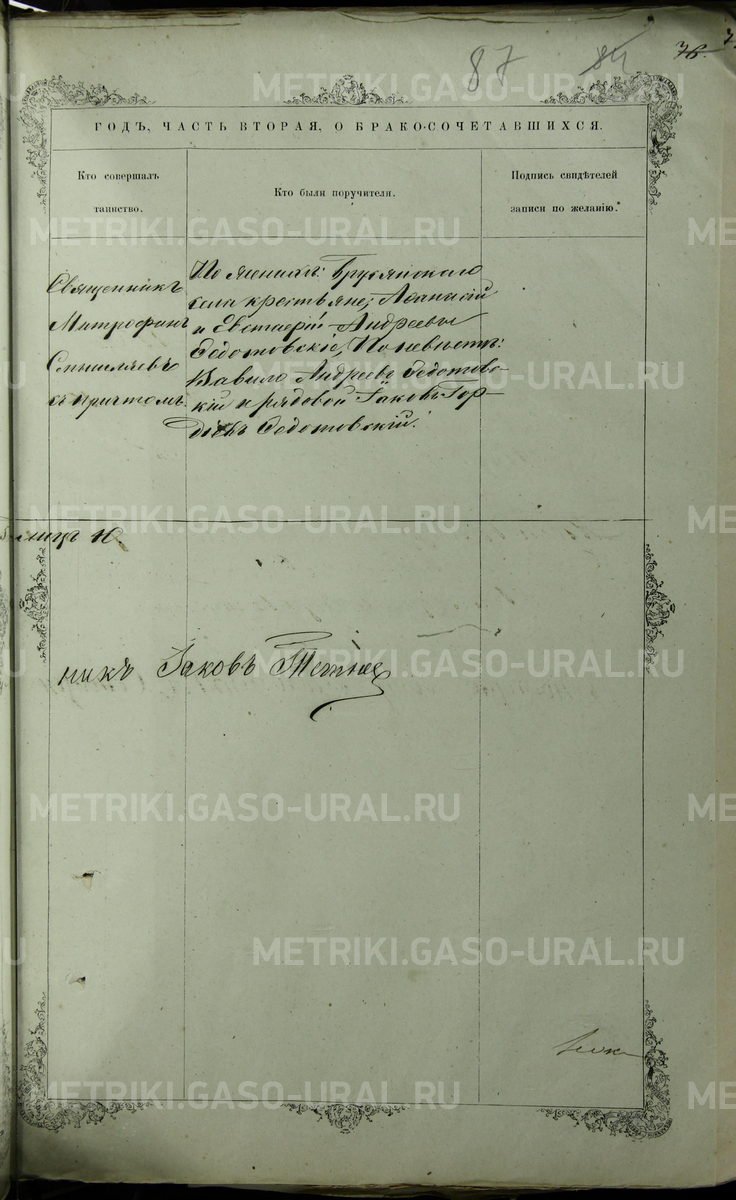 87 84 76.
ГОДЪ, ЧАСТЬ ВТОРАЯ, О БРАКО-СОЧЕТАВШИХСЯ.
Кто совершалъ
таинство.
Кто были поручителя.
Подпись свидѣтелей
записи по желанію.
Священникъ
Митрофанъ
Смышляевъ
съ причтомъ.
По женихѣ: Бруснянского
села крестьяне, Афанасій
и Евстафій Андреевы
Федотовскіе, По невѣстѣ:
Вавило Андреевъ Федотов-
скій и рядовой Іаковъ Гор-
дѣевъ Федотовскій.
никъ Іаковъ
METRIKI.GASO-URAL.RU